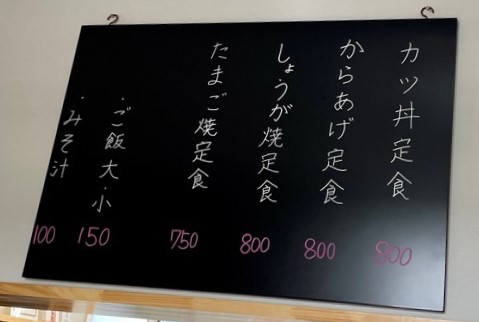 カツ丼定食 800
からあげ定食 800
しょうが焼定食 800
たまご焼定食 750
・ご飯大・小 150
・みそ汁 100